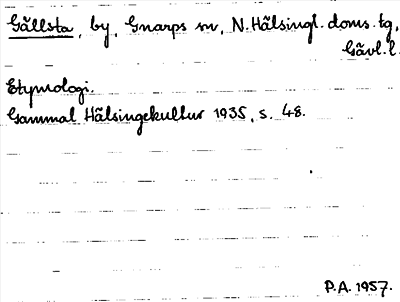 Gällsta, by, Gnarps sn, N. Hälsingl. doms. tg,
Gävl. l.
Etymologi.
Gammal Hälsingekultur 1935, s. 48.
P.A. 1957.